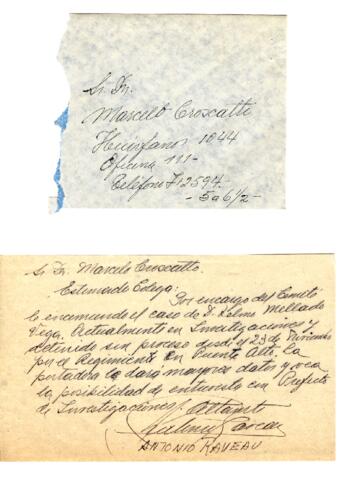 Sr. Dr.
Marcelo Croscatto
Huérfanos 1044
Oficina 111-
Teléfono 712594-
- 5 a 6 1/2 -
Sr. Dr. Marcelo Croscatto.
Estimado Colega:
Por encargo del Comité
le encomiendo el caso de D. Mellado
Vega. Actualmente en Investigaciones y
detenido sin proceso desde el 23 de
por el Regimiento en Puente Alto. La
portadora le dará mayores datos y
la posibilidad de entrevista con Prefecto
de Investigaciones. Attamte
ANTONIO RAVEAU